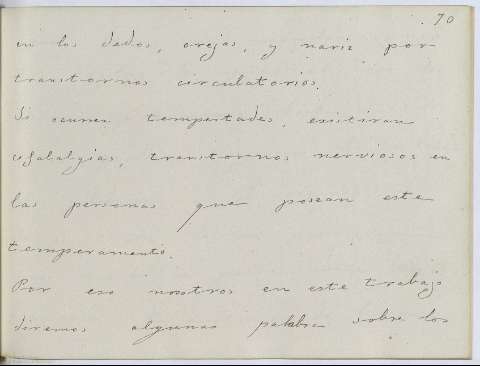 70
en los dedos, orejas, y nariz por
transtornos circulatorios.
Si ocurren tempestades, existiran
cefalalgias, transtornos nerviosos en
las personas que posean este
temperamento.
Por eso nosotros en este trabajo
diremos algunas palabras sobre los